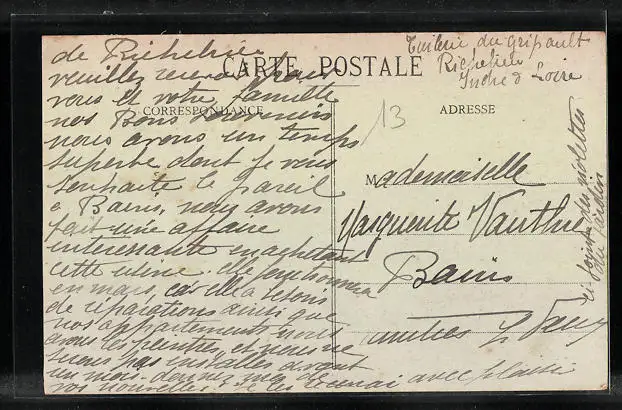 CARTE POSTALE
CORRESPONDANCE
ADRESSE
13
Tuilerie du Gripault
Richelieu
Indre & Loire
de Richelieu
veuillez recevoir pour
vous et votre famille
nos Bons Souvenirs
nous avons un temps
superbe dont je vous
souhaite le pareil
a Bains, nous avons
fait une affaire
interessante en achetant
cette usine.
en mars, car elle a besoin
de réparations ainsi que
nos appartements nous
avons les peintres et nous ne
serons pas installés avant
un mois. donnez moi de
vos nouvelles je les recevrai avec plaisir
Mademoiselle
Marguerite Vauthier
Bains